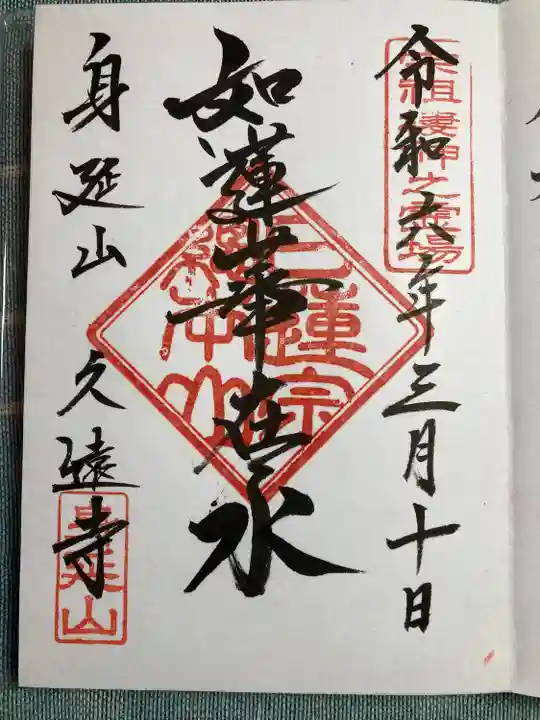 宗祖棲神之霊場
令和六年三月十日
如蓮華在水
日蓮宗総本山
身延山 久遠寺
身延山